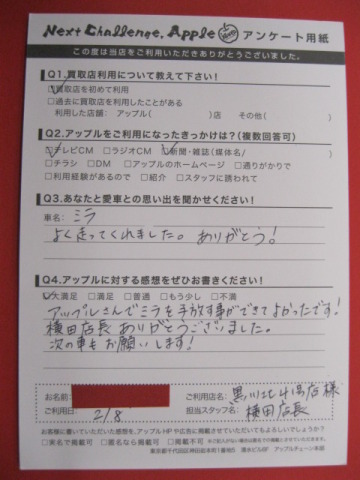 Next Challenge. Apple アンケート用紙
この度は当店をご利用いただきありがとうございました。
Q1.買取店利用について教えて下さい!
□買取店を初めて利用
□過去に買取店を利用したことがある
利用した店舗: アップル( )店 その他( )
Q2.アップルをご利用になったきっかけは?(複数回答可)
□テレビCM □ラジオCM □新聞・雑誌(媒体名/ )
□チラシ □DM □アップルのホームページ □通りがかりで
□利用経験があるので □紹介 □スタッフに誘われて
Q3.あなたと愛車との思い出を聞かせください!
車名: ミラ
よく走ってくれました。ありがとう!
Q4.アップルに対する感想をぜひお書きください!
□大満足 □満足 □普通 □もう少し □不満
アップルさんでミラを手放す事ができてよかったです!
横田店長ありがとうございました。
次の車もお願いします!
お名前: ご利用店名: 黒川北4号店様
ご利用日: 2/8 担当スタッフ名: 横田店長
お客様に書いていただいた感想を、アップルHPや広告に掲載させていただいてもよろしいでしょうか?
□実名で掲載可 □匿名なら掲載可 □掲載不可